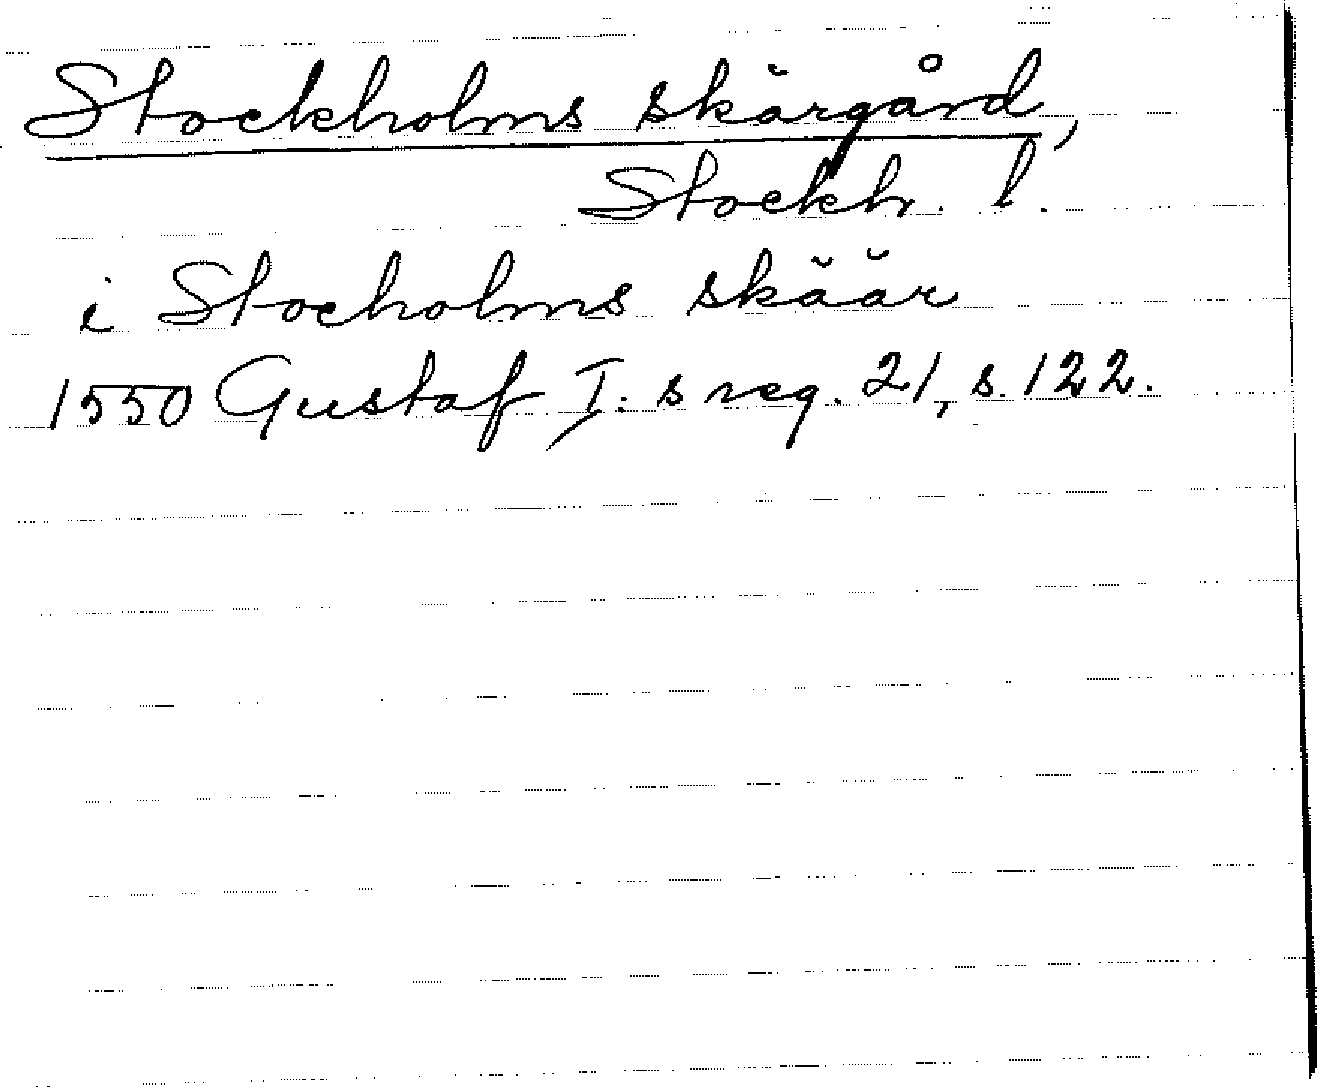 Stockholms skärgård,
Stockh. l.
i Stocholms skäär
1550 Gustaf I:s reg. 21, s. 122.